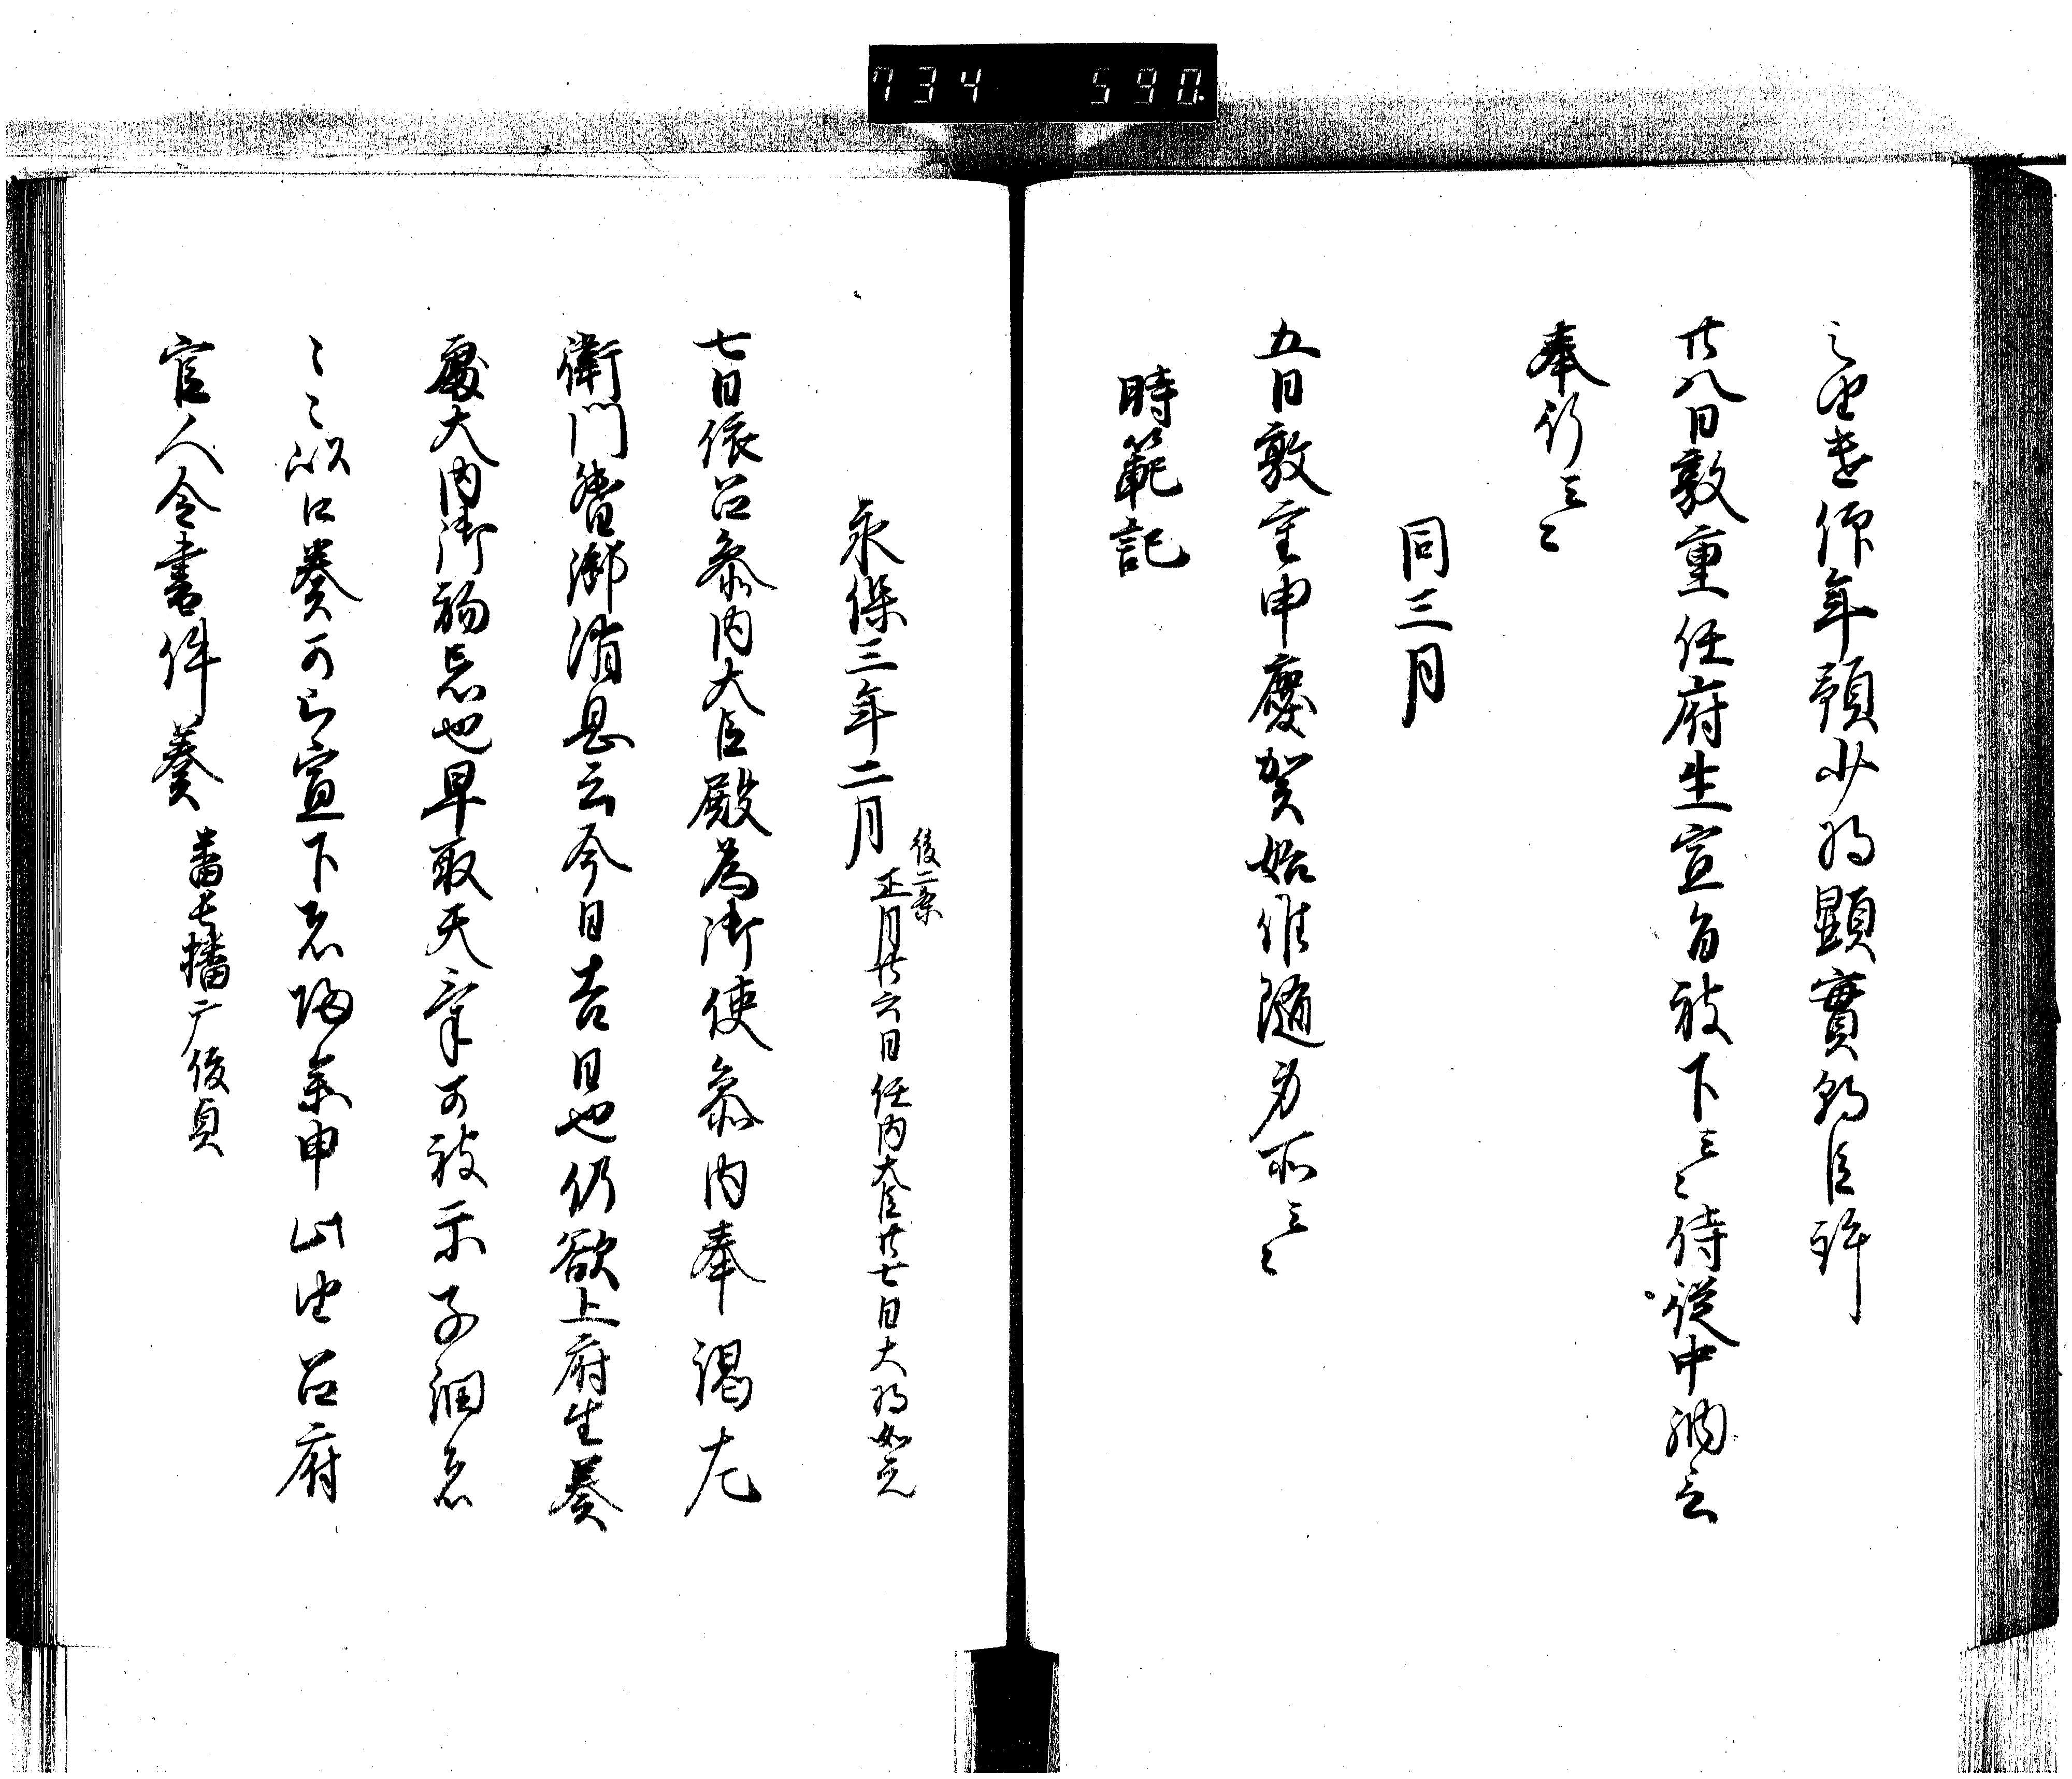 734 590
之由書仰年預少将顕實朝臣許
廿八日敦重任府生宣旨被下云々侍従中納言
奉行云々
同三月
五日敦重申慶賀始候随身所云々
時範記
永保三年二月 後二条 正月廿六日任内大臣廿七日大将如元
七日依召参内大臣殿為御使参内奉謁左
衛門督御消息云今日吉日也仍欲上府生奏
處大内御物忌也早取天気可被示子細者
々々以口奏可令宣下者帰参申此由召府
官人令書件奏 番長播广俊貞